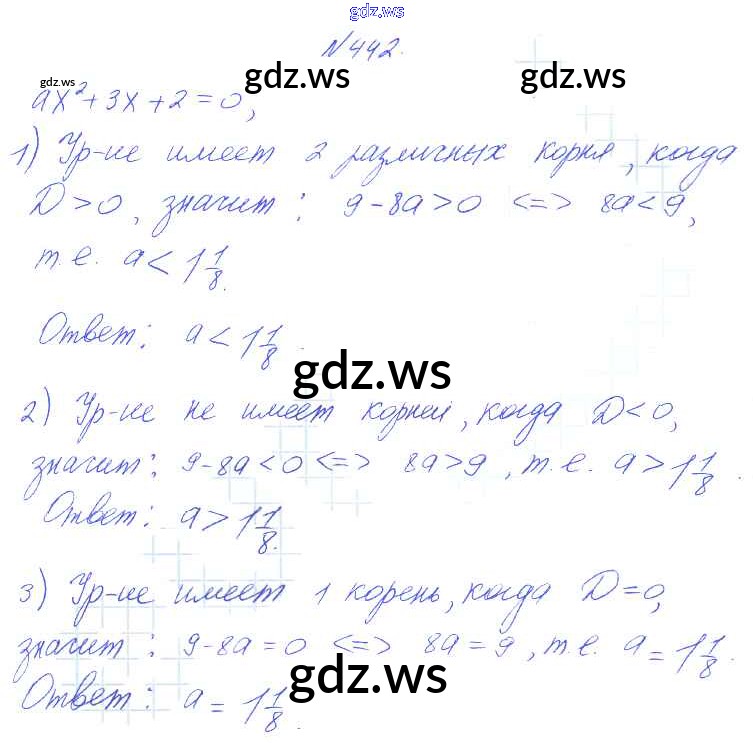 gdz.ws
№442.
gdz.ws gdz.ws gdz.ws
ax²+3x+2=0,
1) Ур-ие имеет 2 различных корня, когда
D>0, значит: 9-8a>0 <=> 8a<9,
gdz.ws gdz.ws
т.е. a<1 1/8.
Ответ: a<1 1/8.
gdz.ws
2) Ур-ие не имеет корней, когда D<0,
значит: 9-8a<0 <=> 8a>9, т.е. a>1 1/8.
gdz.ws gdz.ws
Ответ: a>1 1/8.
3) Ур-ие имеет 1 корень, когда D=0,
gdz.ws gdz.ws
значит: 9-8a=0 <=> 8a=9, т.е. a=1 1/8.
Ответ: a=1 1/8.
gdz.ws